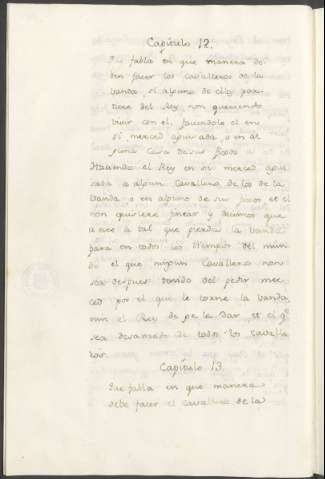 Capítulo 12.
Que fabla en que manera de-
ben facer los cavalleros de la
vanda, si alguno de ellos par-
tiere del Rey, non queriendo
bivir con el, faciendole el en
sí merced aguisada o en al-
guno de sus fijos
Haciendo el Rey en su merced agui-
sada a algun Cavallero de los de la
vanda o en alguno de sus fijos et el
non quisiere y decimos que
a este a tal que pierda la vanda
para en todos los tiempos del mun-
do et que ningun Cavallero non
sea despues osado del pedir mer-
ced por el que le torne la vanda,
nin el Rey de ge la dar, et el qe
sea desamado de todos los cavalle-
ros.
Capítulo 13.
Que fabla en que manera
debe facer el cavallero de la